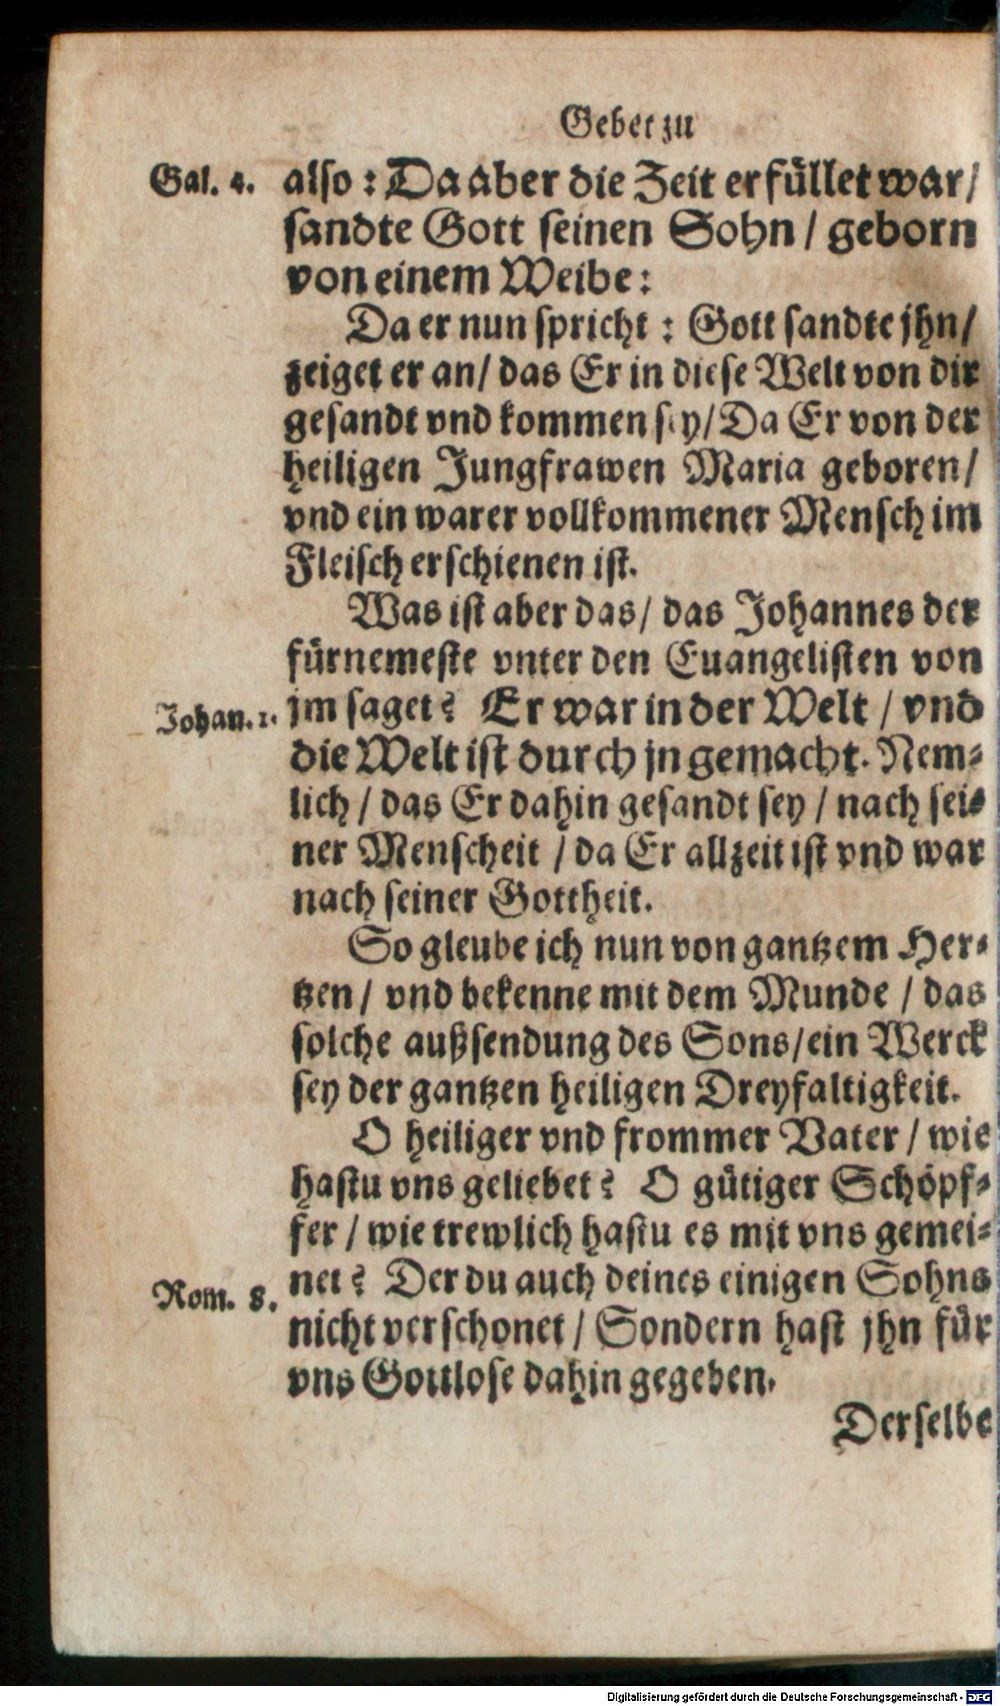 Gebet zu
Gal. 4. also : Da aber die Zeit erfüllet war/
sandte Gott seinen Sohn / geborn
von einem Weibe:
Da er nun spricht : Gott sandte jhn/
zeiget er an/ das Er in diese Welt von dir
gesandt vnd kommen sey/ Da Er von der
heiligen Jungfrawen Maria geboren/
vnd ein warer vollkommener Mensch im
Fleisch erschienen ist.
Was ist aber das/ das Johannes der
fürnemeste vnter den Euangelisten von
Johan. 1. jm saget? Er war in der Welt / vnd
die Welt ist durch jn gemacht. Nem-
lich / das Er dahin gesandt sey / nach sei-
ner Menscheit / da Er allzeit ist vnd war
nach seiner Gottheit.
So gleube ich nun von gantzem Her-
tzen/ vnd bekenne mit dem Munde / das
solche außsendung des Sons/ein Werck
sey der gantzen heiligen Dreyfaltigkeit.
O heiliger vnd frommer Vater / wie
hastu vns geliebet? O gütiger Schöpf-
fer / wie trewlich hastu es mit vns gemei-
Rom. 8. net? Der du auch deines einigen Sohns
nicht verschonet / Sondern hast jhn für
vns Gottlose dahin gegeben.
Derselbe
Digitalisierung gefördert durch die Deutsche Forschungsgemeinschaft - DFG